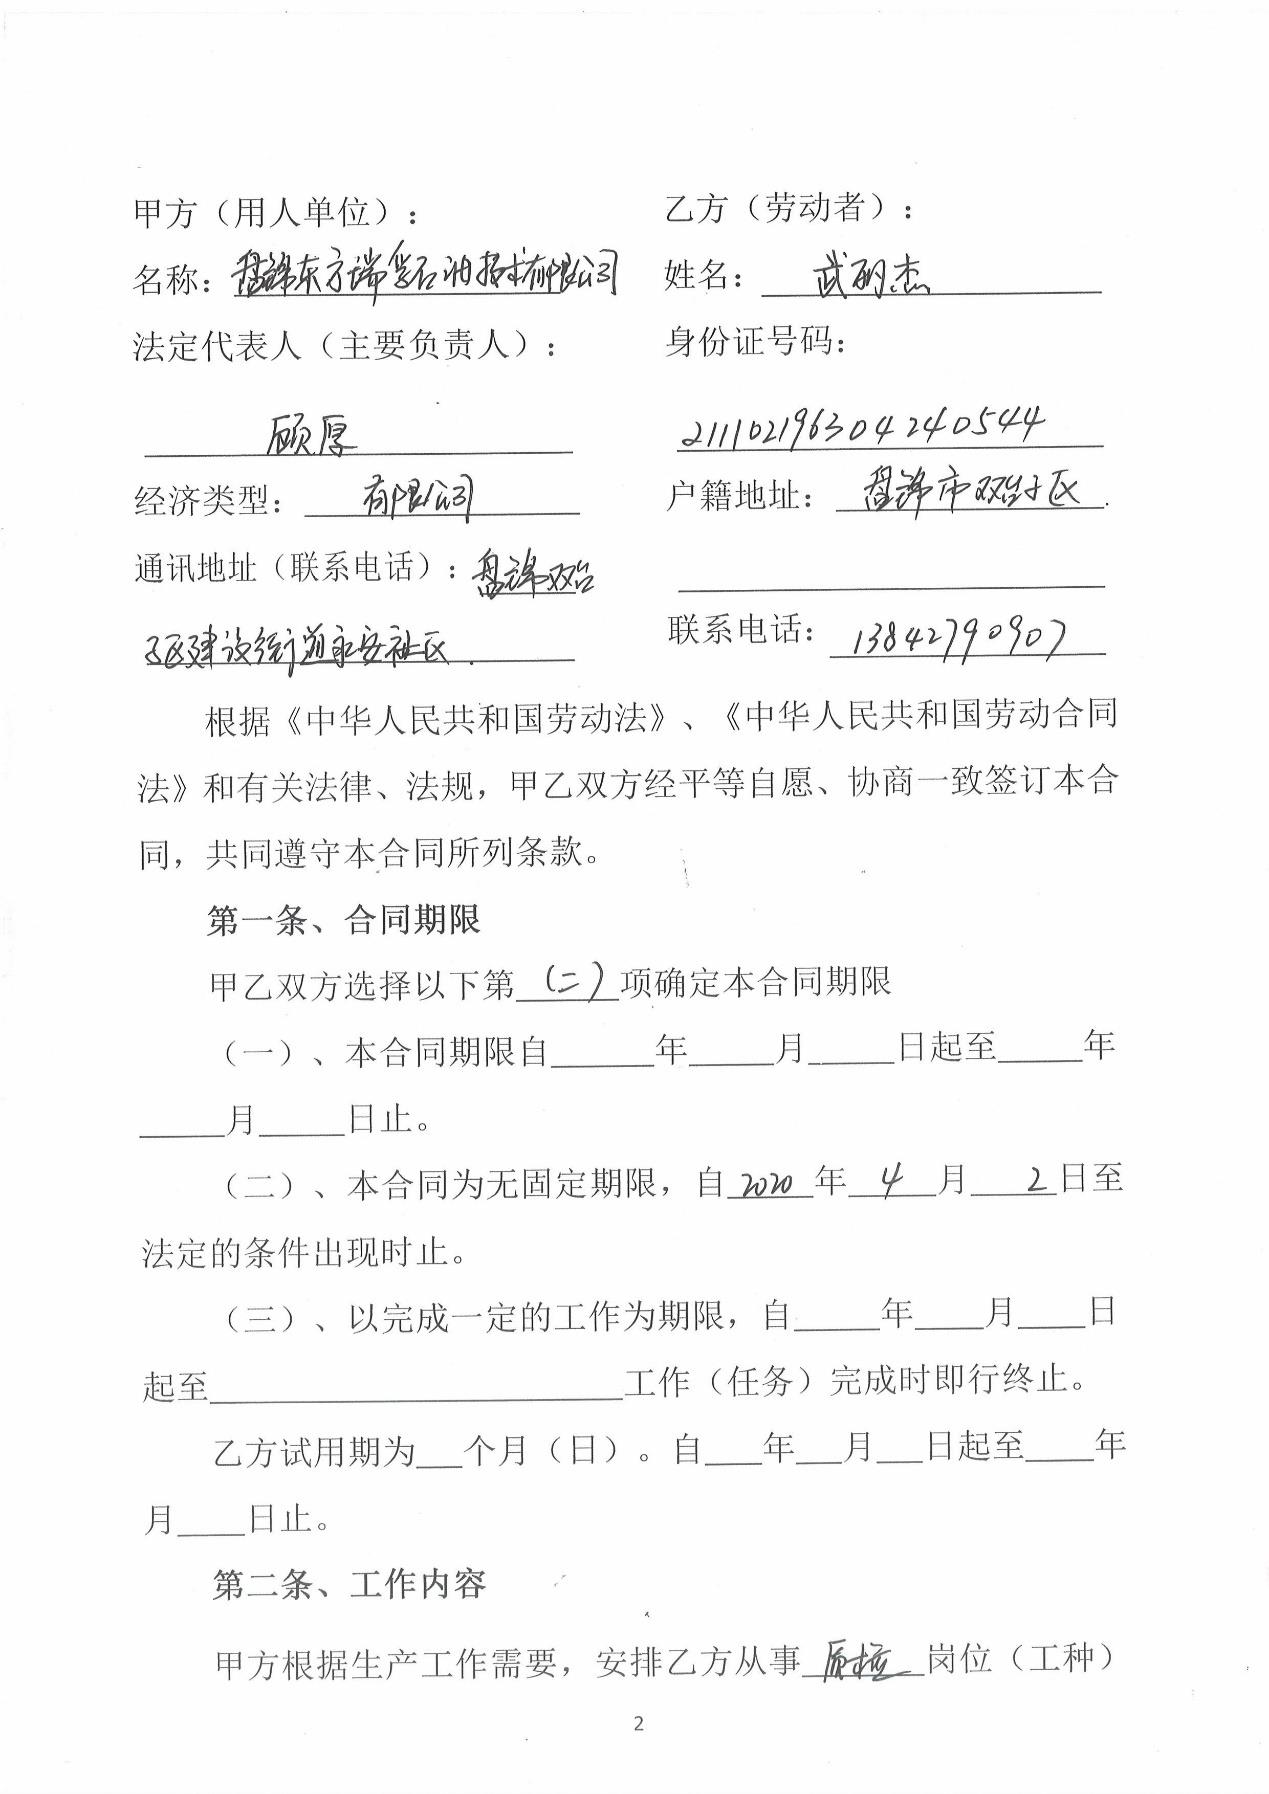 甲方（用人单位）：
乙方（劳动者）：
名称：盘锦东方瑞孚石油技术有限公司
姓名：武丽杰
法定代表人（主要负责人）：
身份证号码：
顾厚
211102196304240544
经济类型：有限公司
户籍地址：盘锦市双台子区
通讯地址（联系电话）：盘锦双台
子区建设街道永安社区.
联系电话：13842790907
根据《中华人民共和国劳动法》、《中华人民共和国劳动合同
法》和有关法律、法规，甲乙双方经平等自愿、协商一致签订本合
同，共同遵守本合同所列条款。
第一条、合同期限
甲乙双方选择以下第（二）项确定本合同期限
（一）、本合同期限自______年_____月_____日起至_____年
_____月_____日止。
（二）、本合同为无固定期限，自2020年4月2日至
法定的条件出现时止。
（三）、以完成一定的工作为期限，自_____年____月____日
起至________________________工作（任务）完成时即行终止。
乙方试用期为___个月（日）。自___年___月___日起至____年
月____日止。
第二条、工作内容
甲方根据生产工作需要，安排乙方从事质检岗位（工种）
2